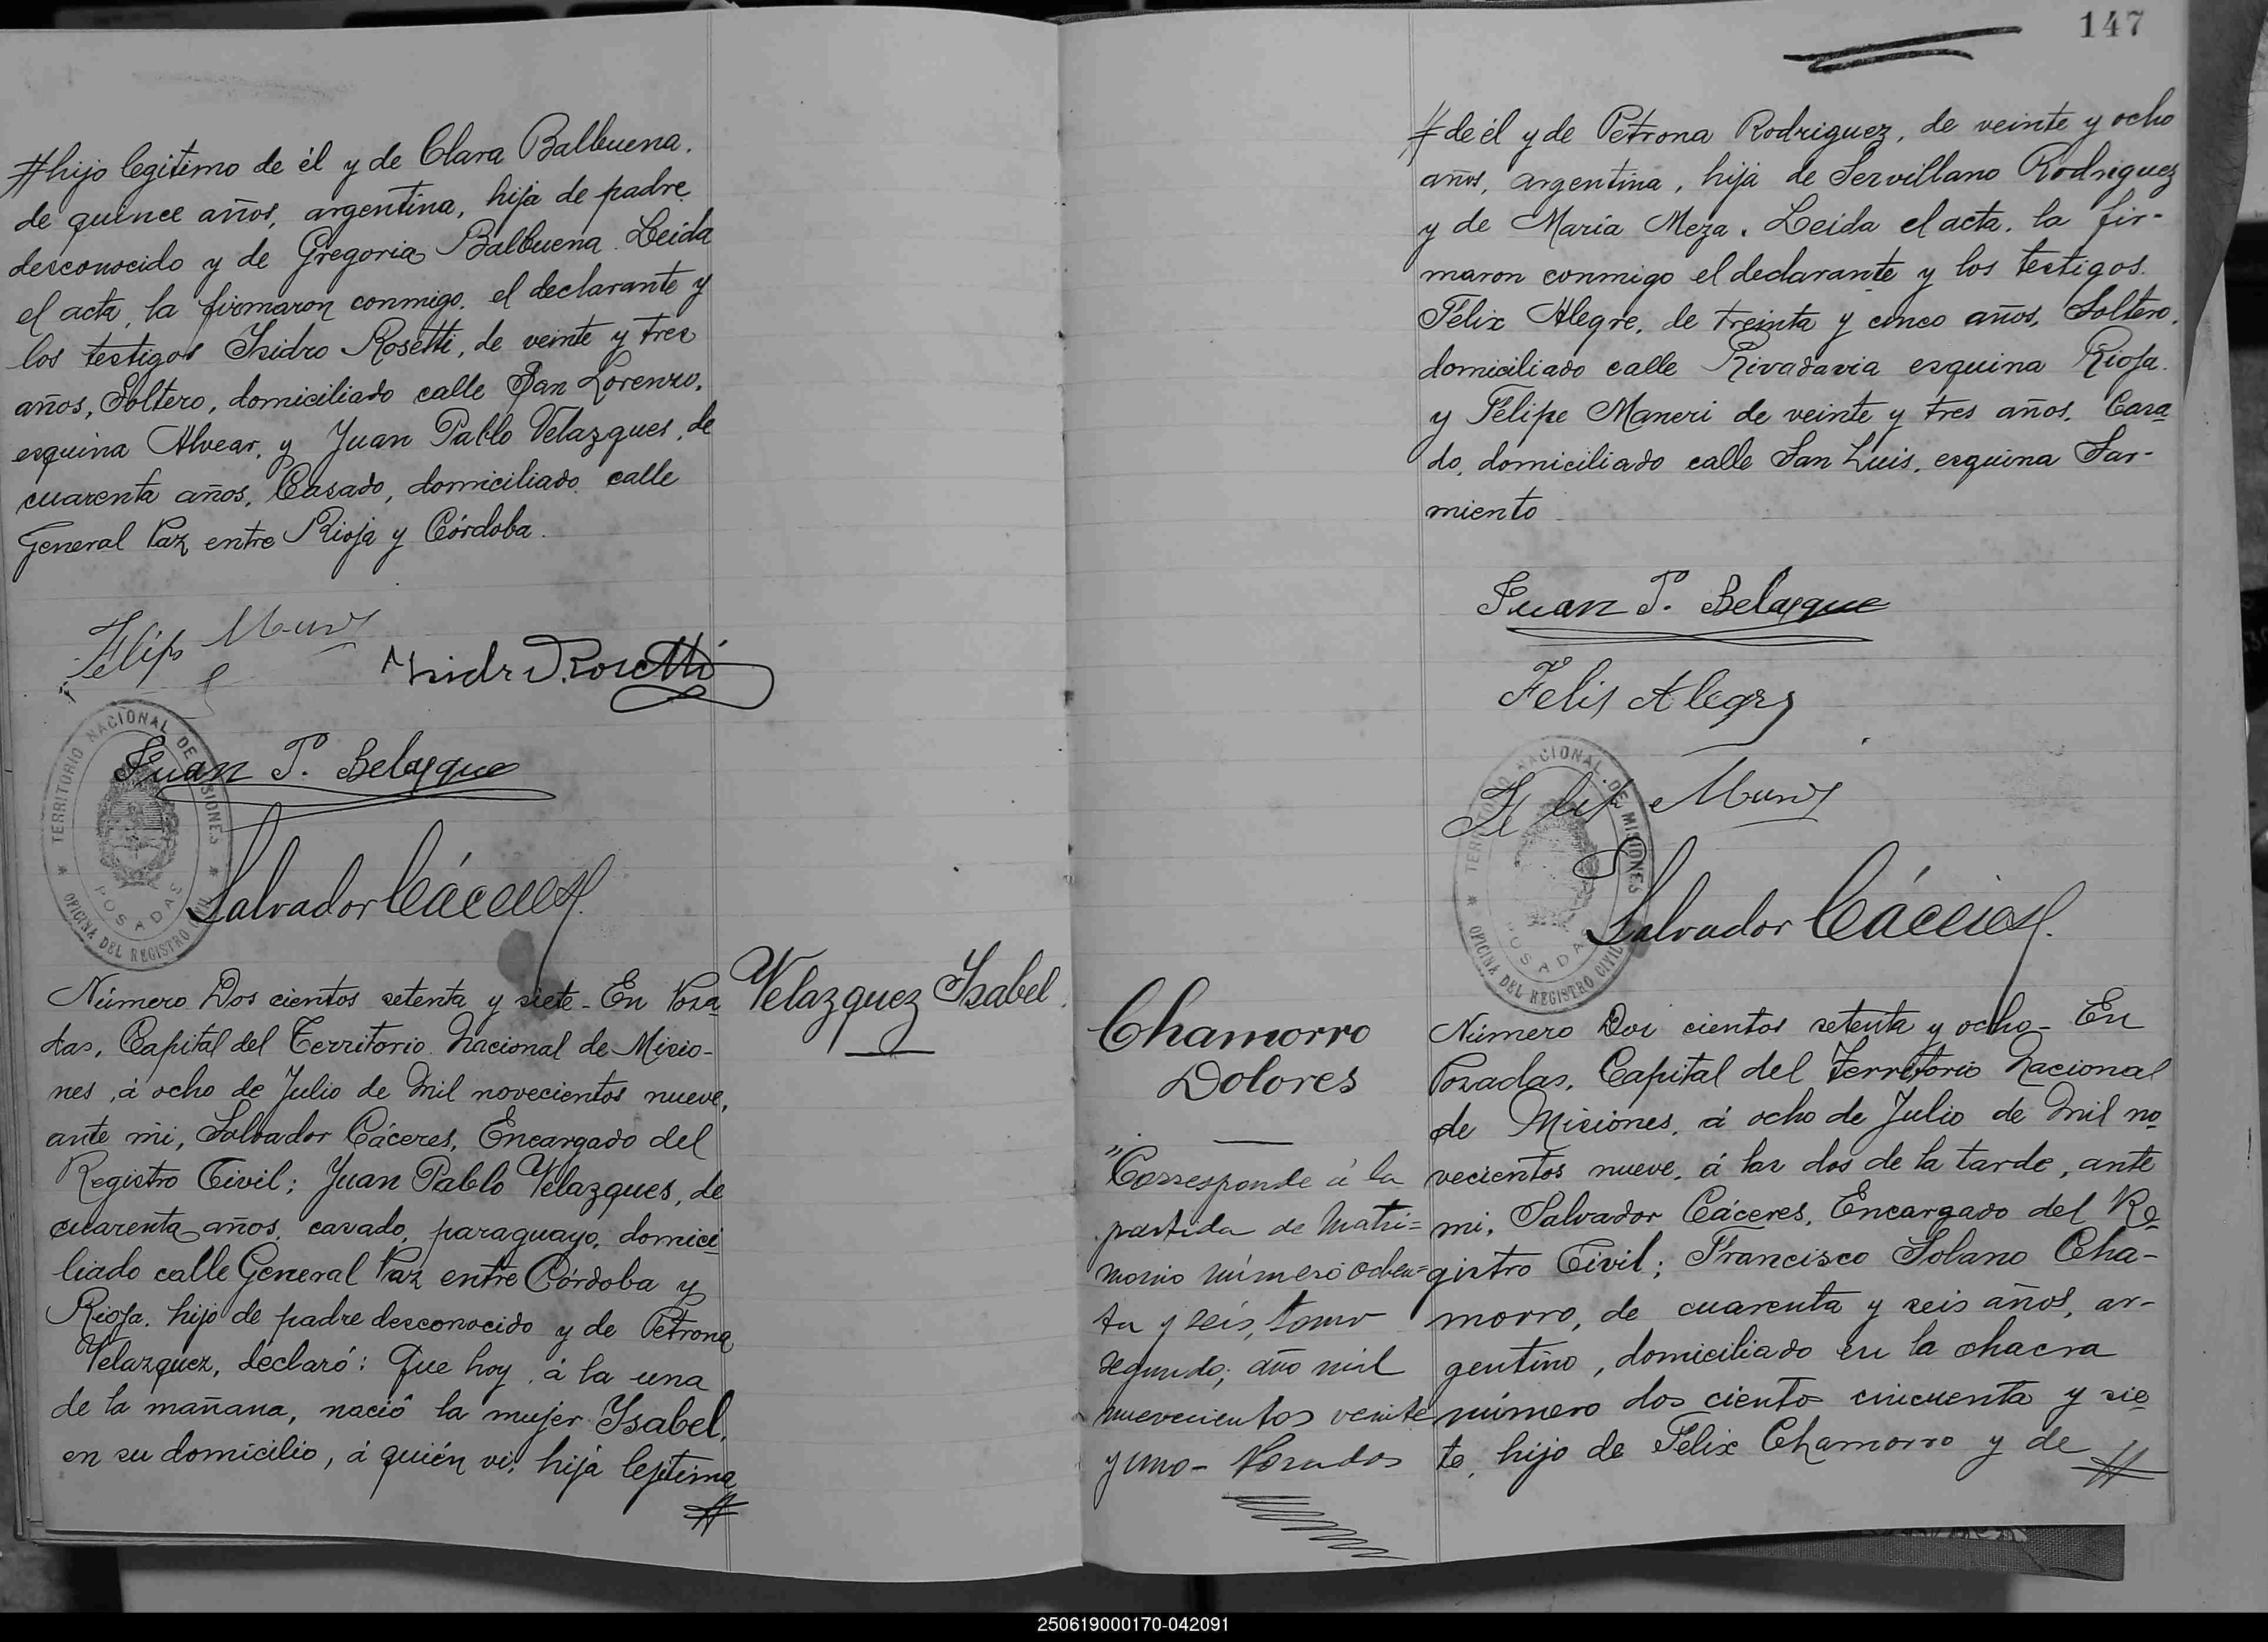 hijo legítimo de él y de Clara Balbuena.
de quince años, argentina, hija de padre
desconocido y de Gregoria Balbuena. Leida
el acta, la firmaron conmigo, el declarante y
los testigos Isidro Rosetti, de veinte y tres
años, Soltero, domiciliado calle San Lorenzo,
esquina Alvear, y Juan Pablo Velazques, de
cuarenta años, Casado, domiciliado calle
General Paz entre Rioja y Córdoba.
Isidro Rosetti
Juan P. Belasque
TERRITORIO NACIONAL DE MISIONES
POSADAS
OFICINA DEL REGISTRO CIVIL
Salvador Cáceres
Número Dos cientos setenta y siete - En Posa
das, Capital del Territorio Nacional de Misio-
nes, á ocho de Julio de Mil novecientos nueve,
ante mi, Salvador Cáceres, Encargado del
Registro Civil; Juan Pablo Velazques, de
cuarenta años, casado, paraguayo, domici
liado calle General Paz entre Córdoba y
Rioja, hijo de padre desconocido y de Petrona
Velazquez, declaró: Que hoy, á la una
de la mañana, nació la mujer Isabel,
en su domicilio, á quién vi, hija lejitima
Velazquez Isabel.
147
de él y de Petrona Rodriguez, de veinte y ocho
años, argentina, hija de Servillano Rodriguez
y de María Meza. Leida el acta, la fir-
maron conmigo el declarante y los testigos
Felix Alegre, de treinta y cinco años, Soltero,
domiciliado calle Rivadavia esquina Rioja.
y Felipe Maneri de veinte y tres años, Casa
do, domiciliado calle San Luis, esquina Sar-
miento
Juan P. Belasque
Felis Alegre
TERRITORIO NACIONAL DE MISIONES
POSADAS
OFICINA DEL REGISTRO CIVIL
Salvador Cáceres
Chamorro
Dolores
"Corresponde á la
partida de Matri=
monio número ochen=
ta y seis, tomo
segundo; año mil
nuevecientos veinte
y uno - Posadas
Número Dos cientos setenta y ocho - En
Posadas, Capital del Territorio Nacional
de Misiones, á ocho de Julio de Mil no
vecientos nueve, á las dos de la tarde, ante
mi, Salvador Cáceres, Encargado del Re
gistro Civil; Francisco Solano Cha-
morro, de cuarenta y seis años, ar-
gentino, domiciliado en la chacra
número dos ciento cincuenta y sie
te, hijo de Felix Chamorro y de
250619000170-042091